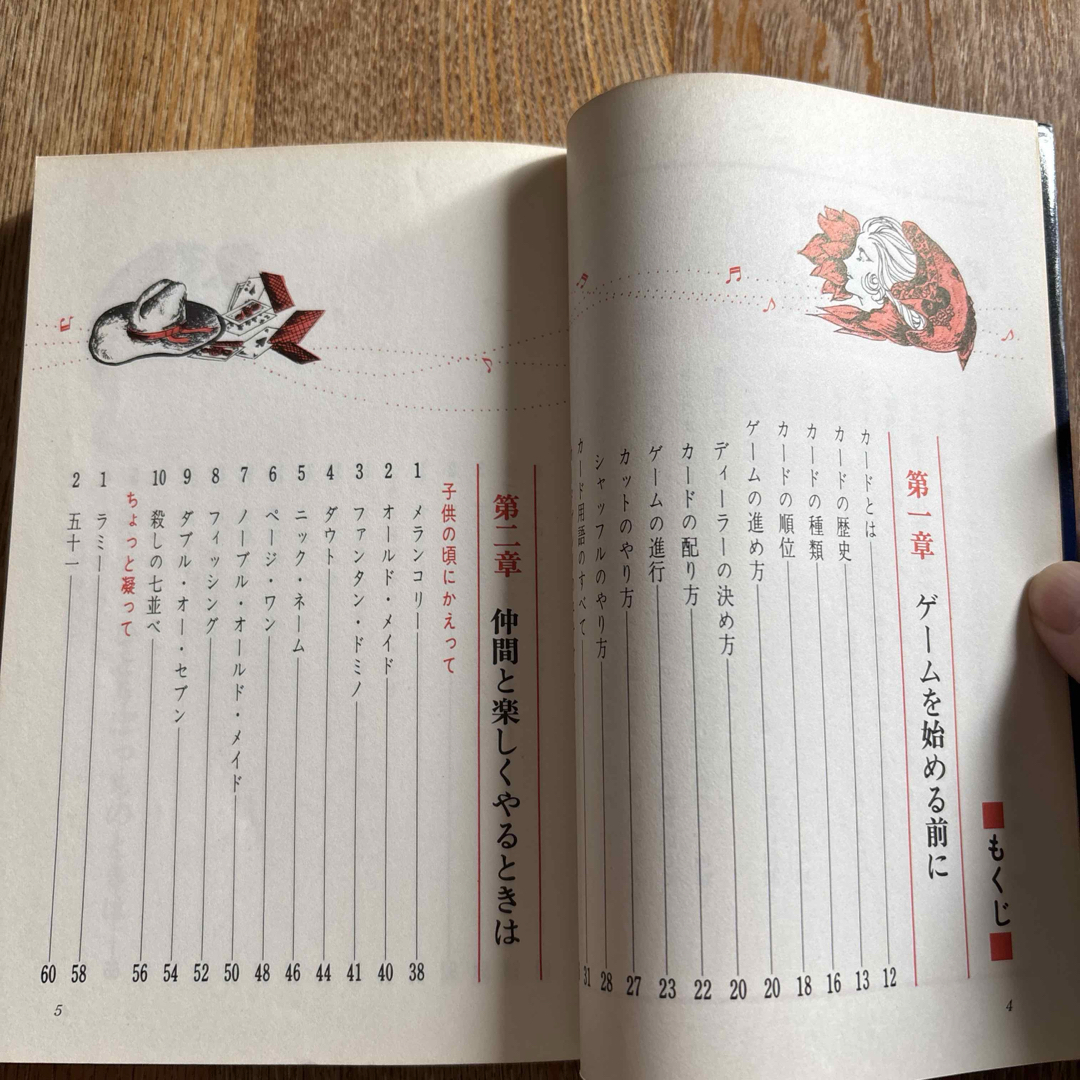 ■もくじ■
第一章 ゲームを始める前に
カードとは 12
カードの歴史 13
カードの種類 16
カードの順位 18
ゲームの進め方 20
ディーラーの決め方 20
カードの配り方 22
ゲームの進行 23
カットのやり方 27
シャッフルのやり方 28
カード用語のすべて 31
4
第二章 仲間と楽しくやるときは
子供の頃にかえって
1 メランコリー 38
2 オールド・メイド 40
3 ファンタン・ドミノ 41
4 ダウト 44
5 ニック・ネーム 46
6 ページ・ワン 48
7 ノーブル・オールド・メイド 50
8 フィッシング 52
9 ダブル・オー・セブン 54
10 殺しの七並べ 56
ちょっと凝って
1 ラミー 58
2 五十一 60
5